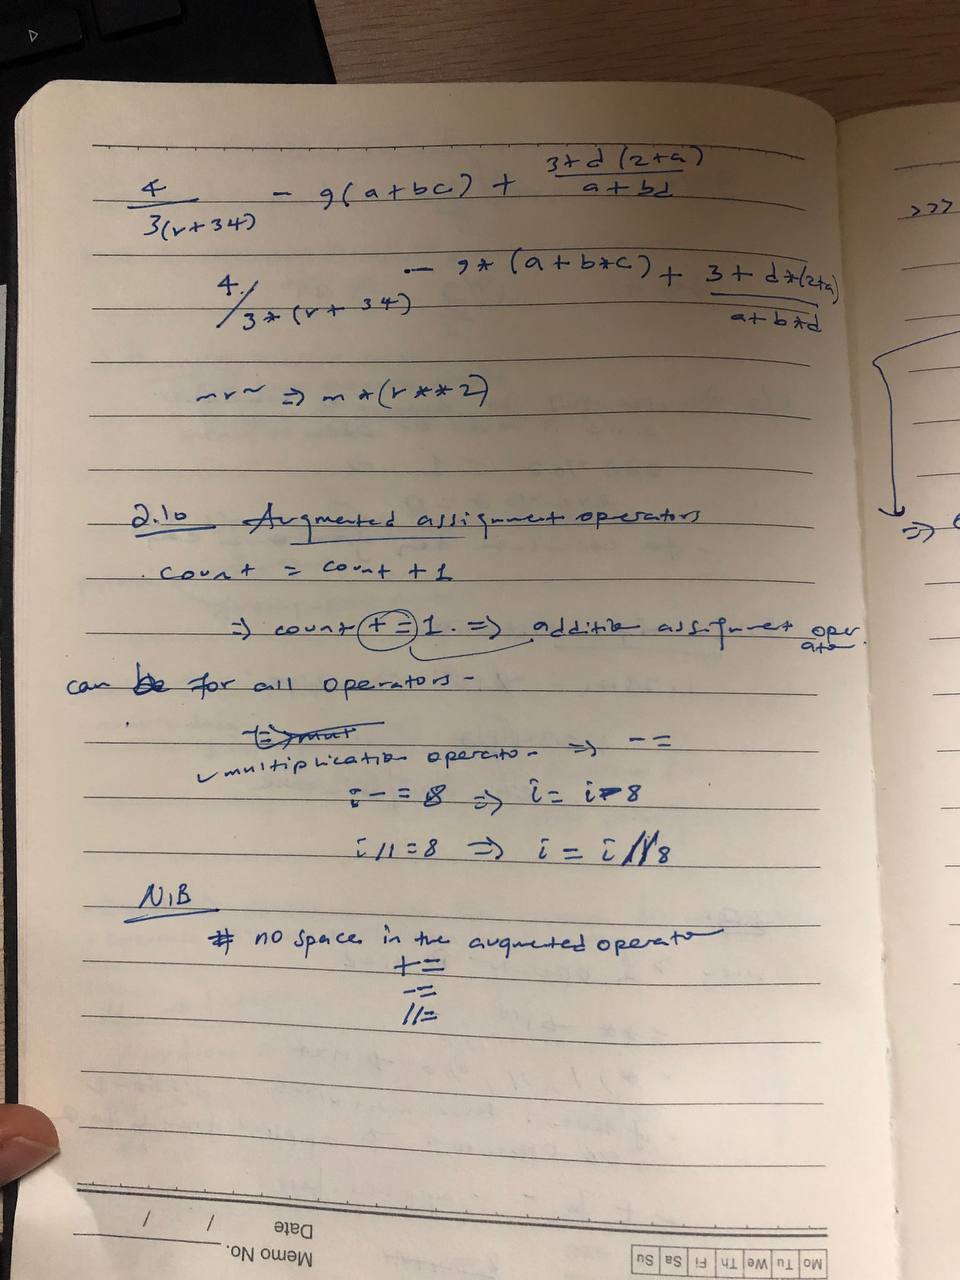 4 / 3(r+34) - 9(a+bc) + 3+d(2+a) / a+bd
4 / 3*(r+34) - 9*(a+b*c) + 3+d*(2+a) / a+b*d
mr~ => m*(r**2)
2.10 Augmented assignment operators
count = count +1
=> count += 1. => addition assignment operator
can be for all operators-
multiplication operator- => -=
i-=8 => i= i-8
i//=8 => i = i//8
N.B
# no space in the augmented operator
+=
-=
//=
>>>
=>
Memo No.
Date / /
Mo Tu We Th Fi Sa Su